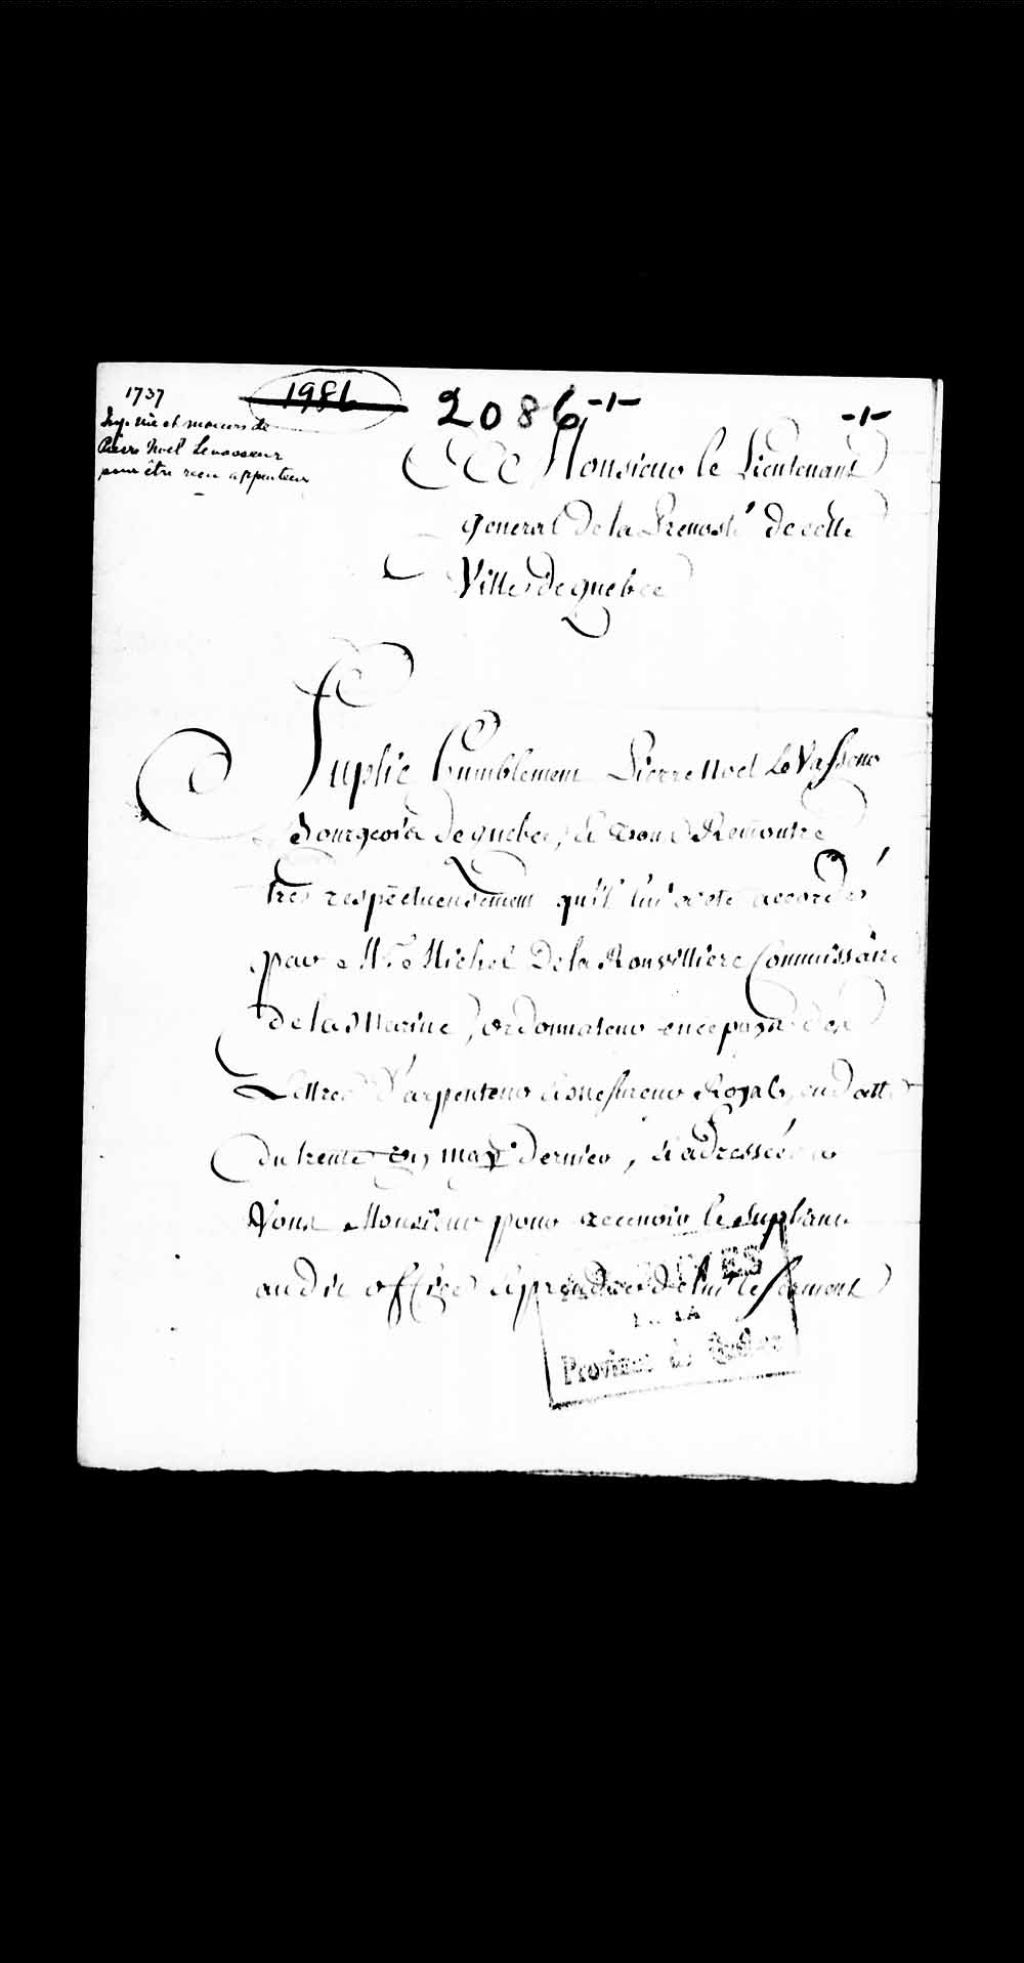 1737
1986
2086 -1-
-1-
Inf. vie et moeurs de
Pierre Noël Levasseur
pour être recu arpenteur
A Monsieur le Lieutenant
general de la Prevosté de cette
Ville de quebec
Suplie humblement Pierre Noel LeVasseur
Bourgeois de quebec, et vous Remontre
tres respectueusement qu'il lui a eté accordé
par Mr. Michel De la Rouvilliere Commissaire
de la Marine, ordonnateur en ce pays des
Lettres d'arpenteur et mesureur Royal, en datte
du trente un may dernier, et adressée a
Vous Monsieur pour recevoir le supliant
audit office et prendre de lui le serment
ARCHIVES
DE LA
Province de Québec